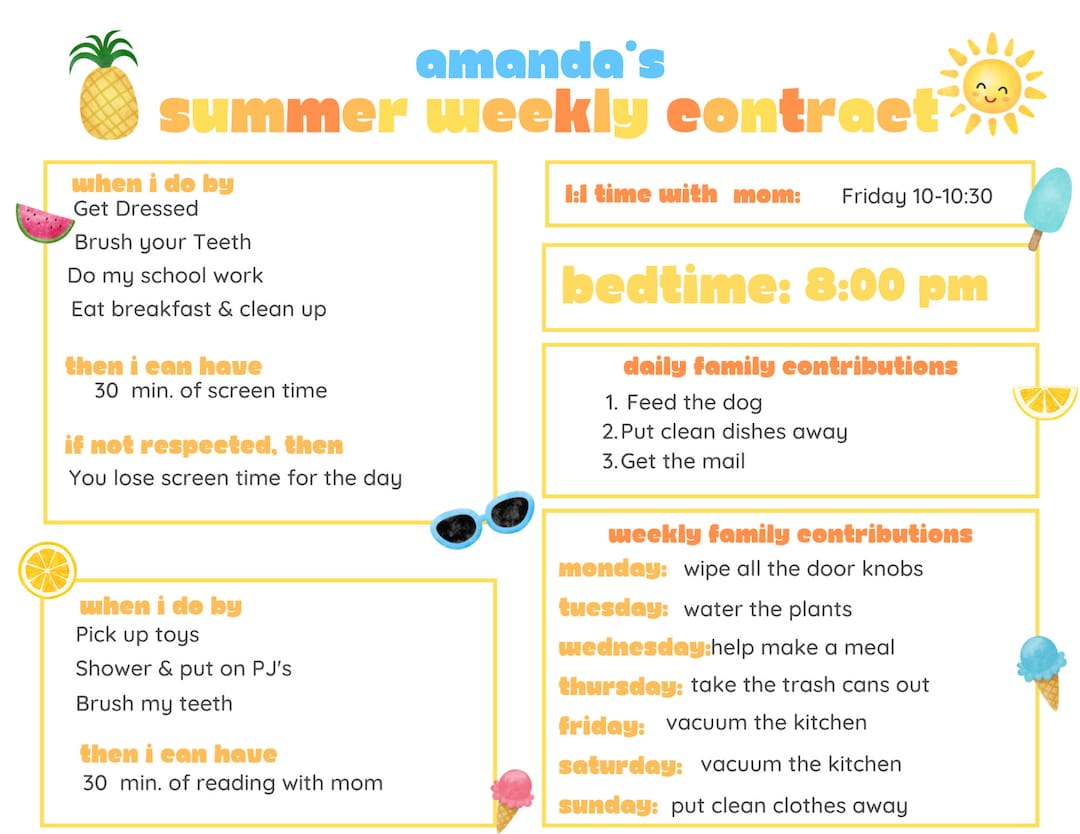 amanda's
summer weekly contract
when i do by
Get Dressed
Brush your Teeth
Do my school work
Eat breakfast & clean up
then i can have
30 min. of screen time
if not respected, then
You lose screen time for the day
when i do by
Pick up toys
Shower & put on PJ's
Brush my teeth
then i can have
30 min. of reading with mom
1:1 time with mom: Friday 10-10:30
bedtime: 8:00 pm
daily family contributions
1. Feed the dog
2. Put clean dishes away
3. Get the mail
weekly family contributions
monday: wipe all the door knobs
tuesday: water the plants
wednesday: help make a meal
thursday: take the trash cans out
friday: vacuum the kitchen
saturday: vacuum the kitchen
sunday: put clean clothes away